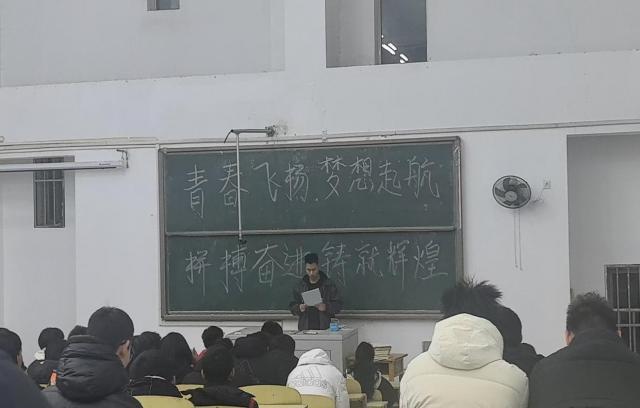 青春飞扬,梦想起航
拼搏奋进 铸就辉煌